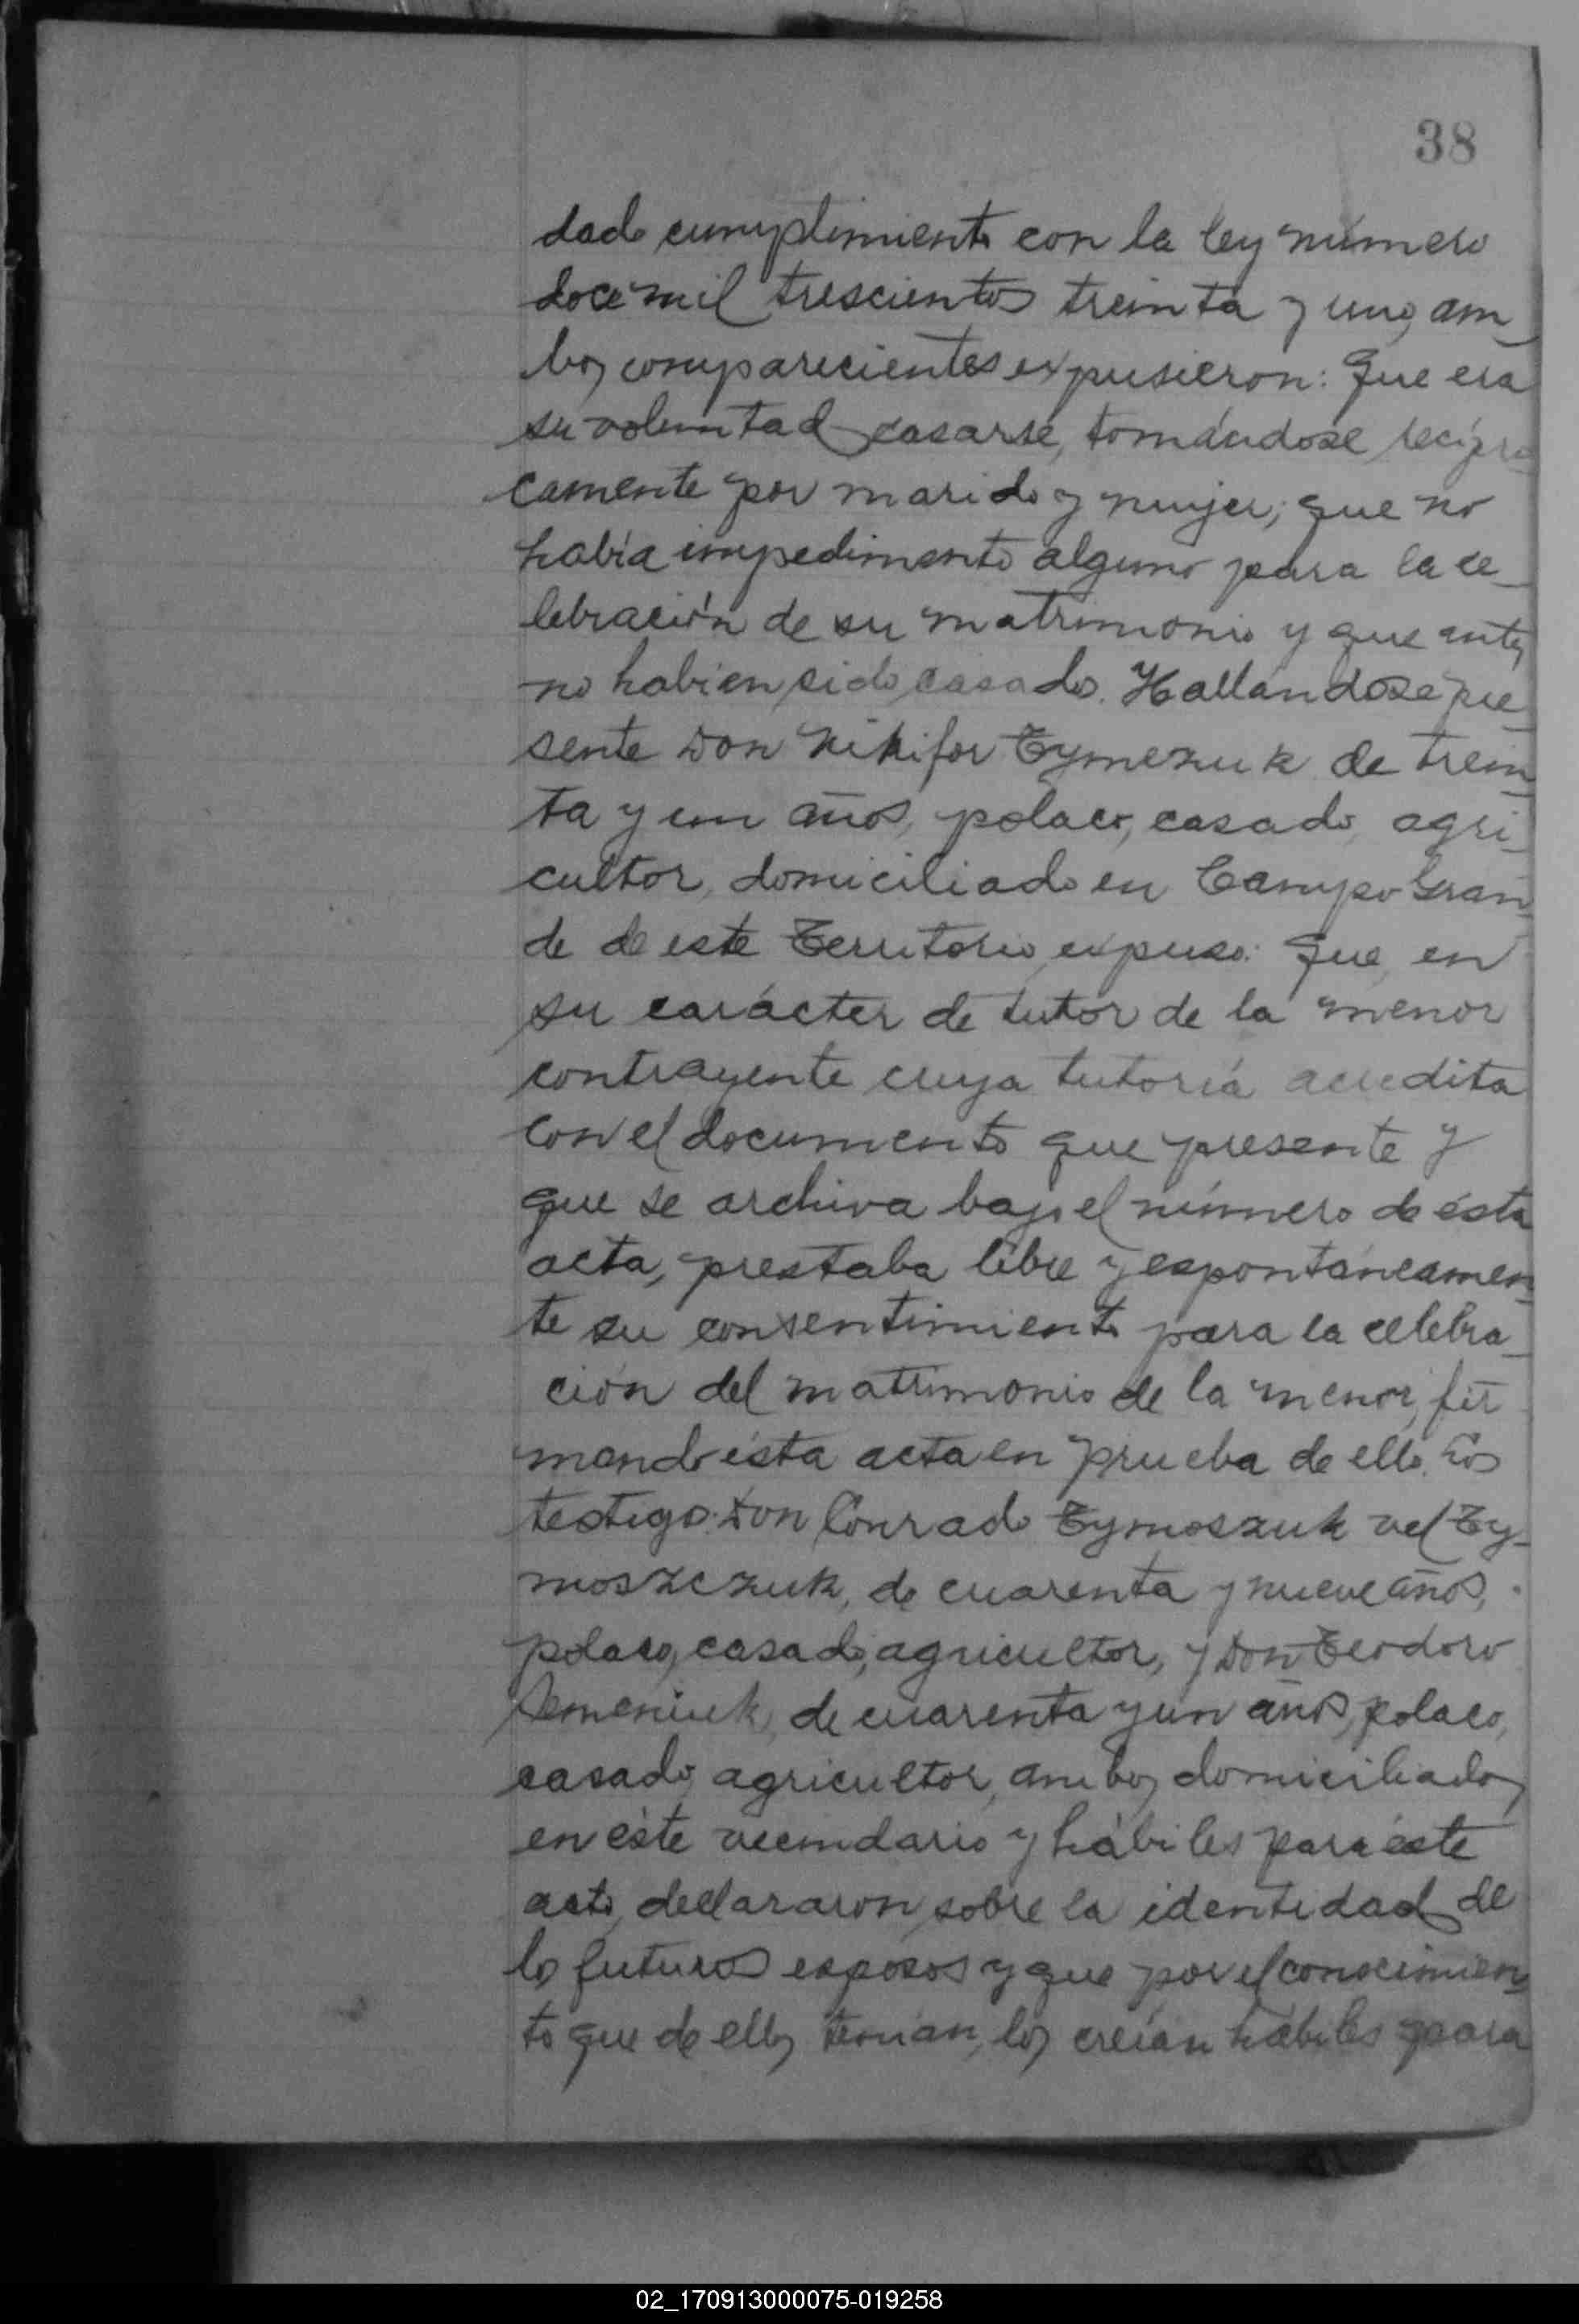 38
dado cumplimiento con la ley número
doce mil trescientos treinta y uno, am_
bos comparecientes expusieron: Que era
su voluntad casarse, tomándose recípro
camente por marido y mujer; que no
había impedimento alguno para la ce_
lebración de su matrimonio y que antes
no habian sido casados. Hallandose pre_
sente Don Nikifor Tymczuk de trein_
ta y un años, polaco, casado, agri_
cultor, domiciliado en Campo Gran_
de de este Territorio, expuso: Que, en
su carácter de tutor de la menor
contrayente cuya tutoría acredita
con el documento que presente y
que se archiva bajo el número de ésta
acta, prestaba libre y espontáneamen_
te su consentimiento para la celebra_
ción del matrimonio de la menor, fir_
mando ésta acta en prueba de ello. Los
testigos: Don Conrado Tymoszuk vel Ty_
moszczuk, de cuarenta y nueve años,
polaco, casado, agricultor, y Don Teodoro
Semeniuk, de cuarenta y un años, polaco,
casado, agricultor, ambos domiciliados
en éste vecindario y hábiles para éste
acto, declararon sobre la identidad de
los futuros esposos y que por el conocimien_
to que de ellos tenían, los creían hábiles para
02_170913000075-019258